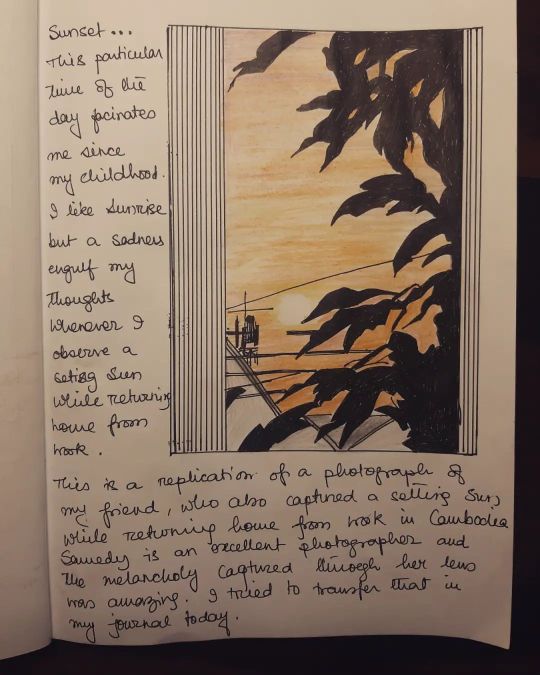 Sunset...
This particular
time of the
day facinates
me since
my childhood.
I like sunrise
but a sadness
engulf my
thoughts
whenever I
observe a
seting sun
while returning
home from
work.
This is a replication of a photograph of
my friend, who also captured a setting sun,
while returning home from work in Cambodia
Samedy is an excellent photographer and
the melancholy captured through her lens
was amazing. I tried to transfer that in
my journal today.